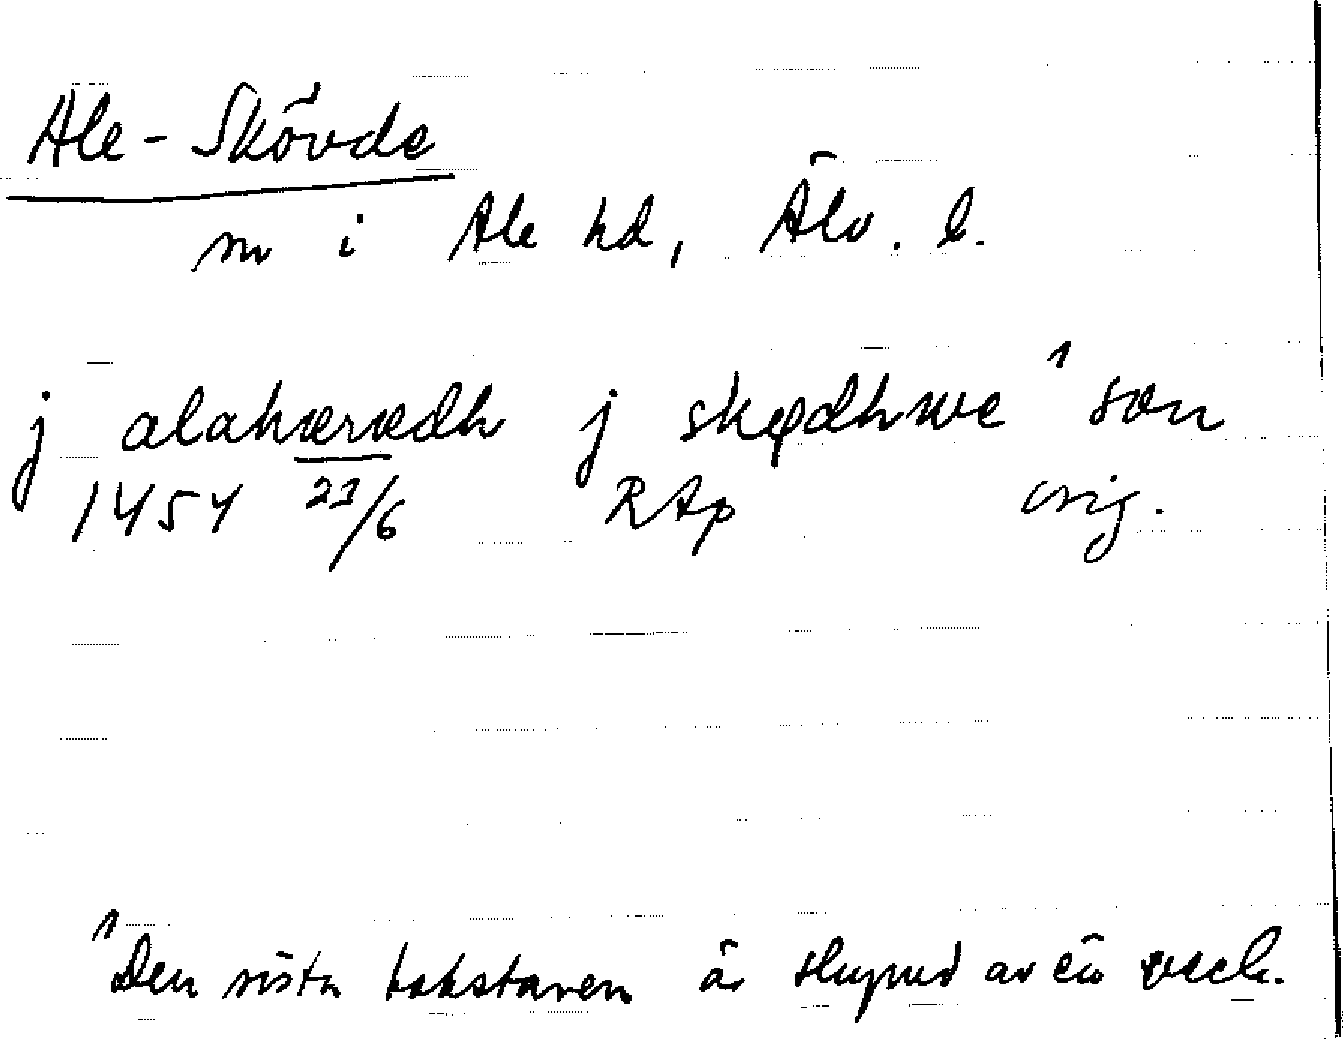 Ale-Skövde
sn i Ale hd, Älv. l.
j alahærædh j skødhwe ¹ sæn
1454 23/6 RAp orig.
¹ Den sista bokstaven är skymd av ett veck.